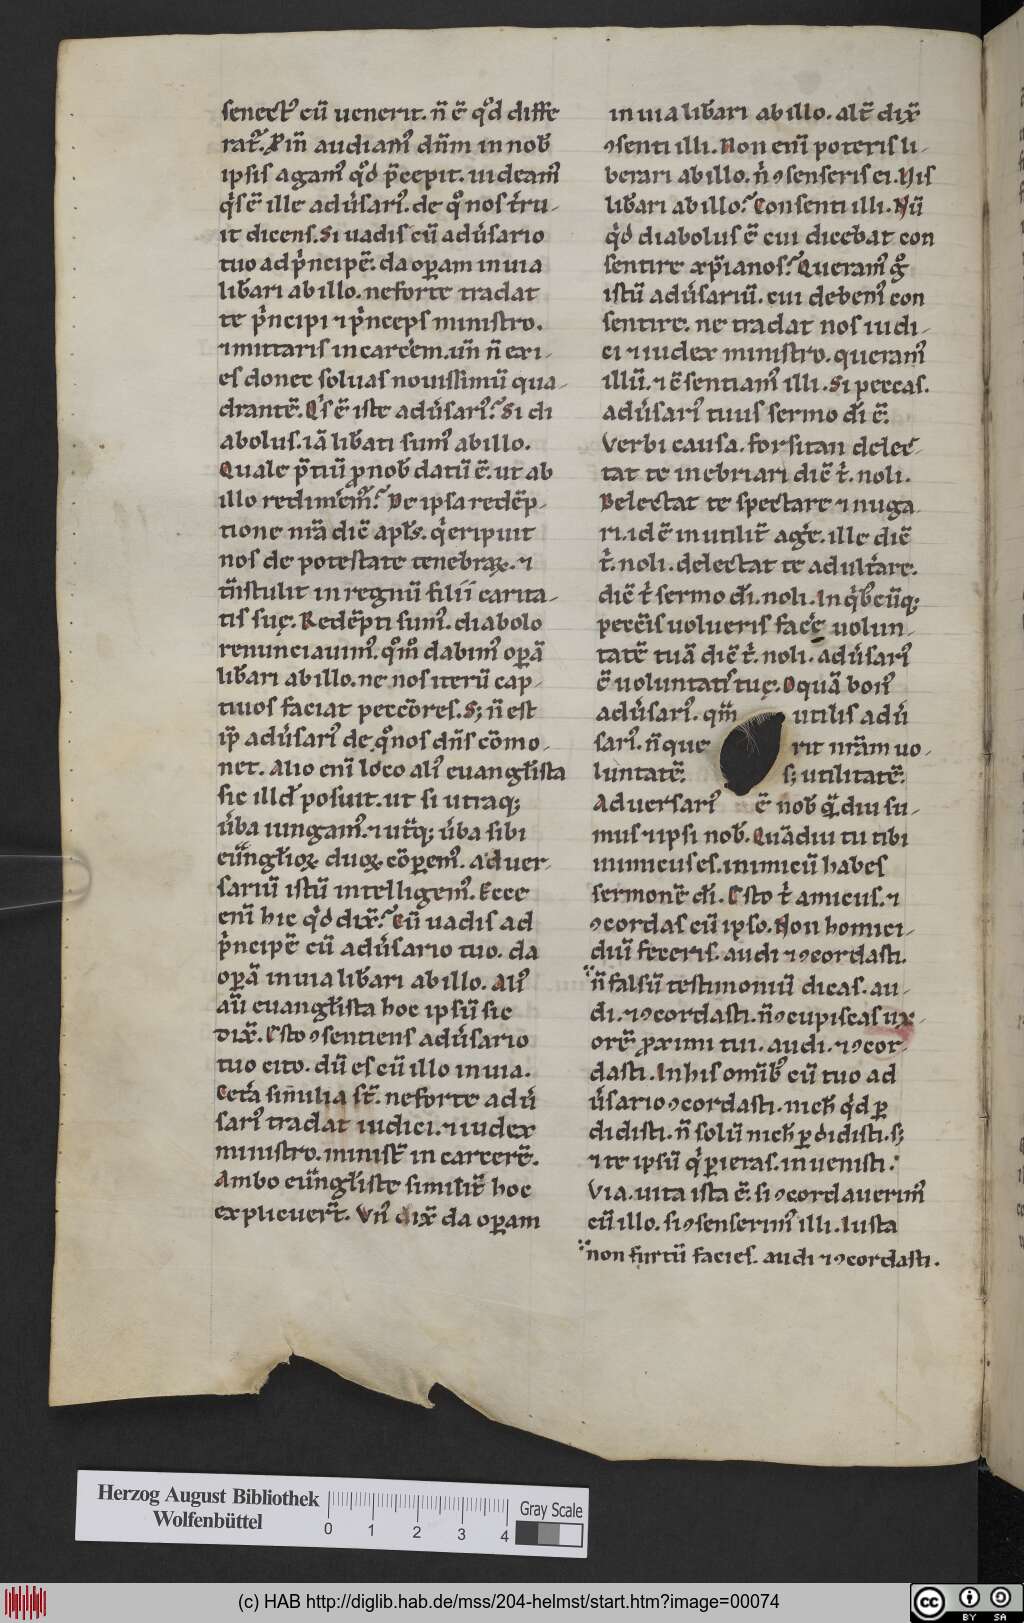 senect᷒ cū uenerit. n̄ ē qͦd diffe
rat᷑. P̱in̄ audiam᷒ dn̄m in nob̄
ipsis agam᷒ qͦd p̄cepit. uideam᷒
qͥs ē ille adu᷒sari᷒. de qͦ nos t᷒ru-
it dicens. Si uadis cū adu᷒sario
tuo ad pͥncipē. da oꝑam in uia
lib᷒ari ab illo. ne forte tradat
te pͥncipi ⁊ pͥnceps ministro.
⁊ mittaris in carcēm. un̄ n̄ exi-
es donec soluas nouissimū qua-
drantē. Qͥs ē iste adu᷒sari᷒. Si di
abolus. iā lib᷒ati sum᷒ ab illo.
Quale p̄tiū ꝓ nob̄ datū ē. ut ab
illo redimem᷒. De ipsa redēp-
tione nr̄a diē apl̄s. qͥ eripuit
nos de potestate tenebraꝝ. ⁊
tn̄stulit in regnū filii carita-
tis suę. Redēpti sum᷒. diabolo
renunciauim᷒. qͦm̄ dabim᷒ oꝑā
lib᷒ari ab illo. ne nos iterū cap-
tiuos faciat peccōres. S; n̄ est
ip̄ adu᷒sari᷒ de qͦ nos dn̄s cōmo-
net. Alio eni loco ali᷒ euangl̄ista
sic illd̄ posuit. ut si utraq;
u᷒ba iungam᷒. ⁊ utq̄; u᷒ba sibi
eūngl̄ioꝝ duoꝝ cōꝑem᷒. aduer-
sariū istū intelligem᷒. Ecce
eni hic qͦd dix̄. Cū uadis ad
pͥncipē cū adu᷒sario tuo. da
oꝑā in uia lib᷒ari ab illo. Ali᷒
aū euangl̄ista hoc ipsū sic
dix̄. Esto ꝯsentiens adu᷒sario
tuo cito. dū es cū illo in uia.
Cet᷒a similia st̄. ne forte adu᷒
sari᷒ tradat iudici. ⁊ iudex
ministro. minist̄ in carcerē.
Ambo eūngl̄iste similit̄ hoc
explicuert̄. Vn᷒ dix̄ da oꝑam
in uia lib᷒ari ab illo. alt̄ dix̄
ꝯsenti illi. Non eni poteris li-
berari ab illo. nͥ ꝯsenseris ei. Uis
lib᷒ari ab illo. Consenti illi. Nū
qͥd diabolus ē cui dicebat con
sentire xp̄ianos. Queram᷒ gͦ
istū adu᷒sariū. cui debem᷒ con
sentire. ne tradat nos iudi-
ci ⁊ iudex ministro. queram᷒
illū. ⁊ ꝯsentiam᷒ illi. Si peccas.
adu᷒sari᷒ tuus sermo dī ē.
Verbi causa. forsitan delec-
tat te inebriari diē tͥ. noli.
Delectat te spectare ⁊ nuga
ri. idē inutilit̄ ag᷒e. ille diē
tͥ. noli. delectat te adult᷒are.
diē tͥ sermo dī. noli. In qͥb᷒cūq;
peccīs uolueris fac᷒e uolun-
tatē tuā diē tͥ. noli. adu᷒sari᷒
ē uoluntatis tuę. O quā bon᷒
adu᷒sari᷒. qm̄ utilis adu᷒
sari᷒. n̄ que rit nr̄am uo-
luntatē. s; utilitatē.
Aduersari᷒ ē nob̄ qͣdiu su-
mus ⁊ ipsi nob̄. Quādiu tu tibi
inimicus es. inimicū habes
sermonē dī. Esto tͥ amicus. ⁊
ꝯcordas cū ipso. Non homici-
diū feceris. audi ⁊ ꝯcordasti.
n̄ falsū testimoniū dicas. au-
di. ⁊ ꝯcordasti. n̄ ꝯcupiscas ux-
orē ꝓximi tui. audi. ⁊ ꝯcor-
dasti. In his omīb᷒ cū tuo ad
u᷒sario ꝯcordasti. nich̄ qͥd ꝑ
didisti. n̄ solū nich̄ ꝑdidisti. s;
⁊ te ipsū qͥ ꝑieras. inuenisti.
Via. uita ista ē. si ꝯcordauerim᷒
cū illo. si ꝯsenserim᷒ illi. Iusta
non furtū facies. audi ⁊ ꝯcordasti.
Herzog August Bibliothek
Wolfenbüttel
0 1 2 3 4
Gray Scale
(c) HAB http://diglib.hab.de/mss/204-helmst/start.htm?image=00074
cc BY SA